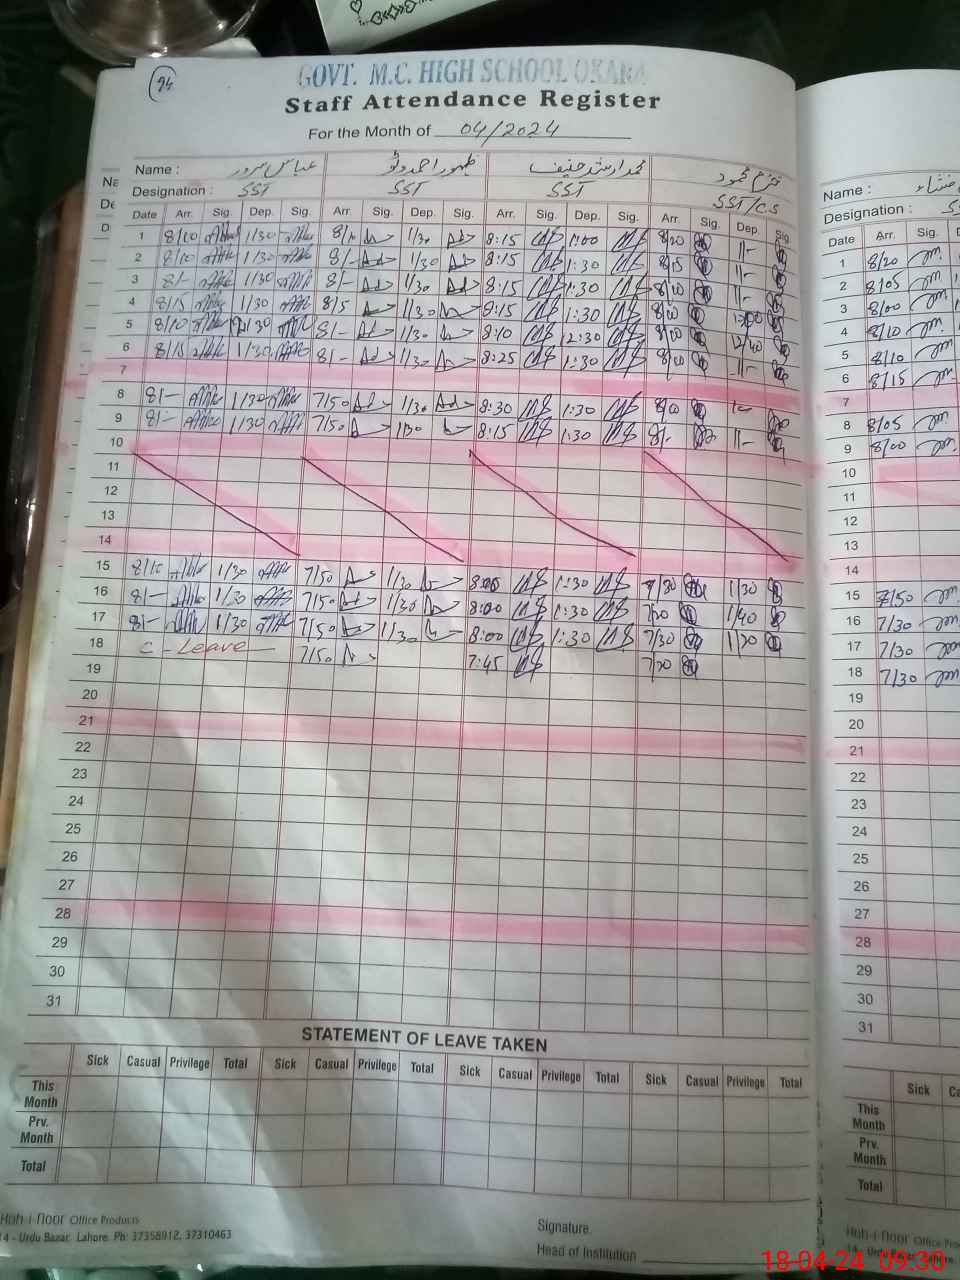 94
GOVT. M.C. HIGH SCHOOL OKARA
Staff Attendance Register
For the Month of 04/2024
Name : عباس سرور ظہور احمد وٹو محمد ارشد حنیف محمود
Designation : SST SST SST SST/CS
Date Arr. Sig. Dep. Sig. Arr. Sig. Dep. Sig. Arr. Sig. Dep. Sig. Arr. Sig. Dep. Sig.
1 8/10 1/30 8/10 1/30 8:15 1:00 8/20 11-
2 8/10 1/30 8/- 1/30 8:15 1:30 8/15 11-
3 8/- 1/30 8/- 1/30 8:15 1:30 8/10 11-
4 8/15 1/30 8/5 1/30 8:15 1:30 8/00
5 8/10 1/30 8/- 1/30 8:10 12:30 8/00 12/40
6 8/15 1/30 8/- 1/30 8:25 1:30 8/00 11-
7
8 8/- 1/30 7/50 1/30 8:30 1:30 8/00
9 8/- 1/30 7/50 1/30 8:15 1:30 8/- 11-
10
11
12
13
14
15 8/10 1/30 7/50 1/30 8:00 1:30 7/30 1/30
16 8/- 1/30 7/50 1/30 8:00 1:30 7/30 1/40
17 8/- 1/30 7/50 1/30 8:00 1:30 7/30 1/30
18 C - Leave 7/50 7:45 7/30
19
20
21
22
23
24
25
26
27
28
29
30
31
STATEMENT OF LEAVE TAKEN
Sick Casual Privilege Total Sick Casual Privilege Total Sick Casual Privilege Total Sick Casual Privilege Total
This Month
Prv. Month
Total
Office Products
14 - Urdu Bazar, Lahore. Ph: 37358912, 37310463
Signature
Head of Institution
Name :
Designation :
Date Arr. Sig.
1 8/20
2 8/05
3 8/00
4 8/10
5 8/10
6 8/15
7
8 8/05
9 8/00
10
11
12
13
14
15 7/50
16 7/30
17 7/30
18 7/30
19
20
21
22
23
24
25
26
27
28
29
30
31
Sick
This Month
Prv. Month
Total
18-04-24 09:30